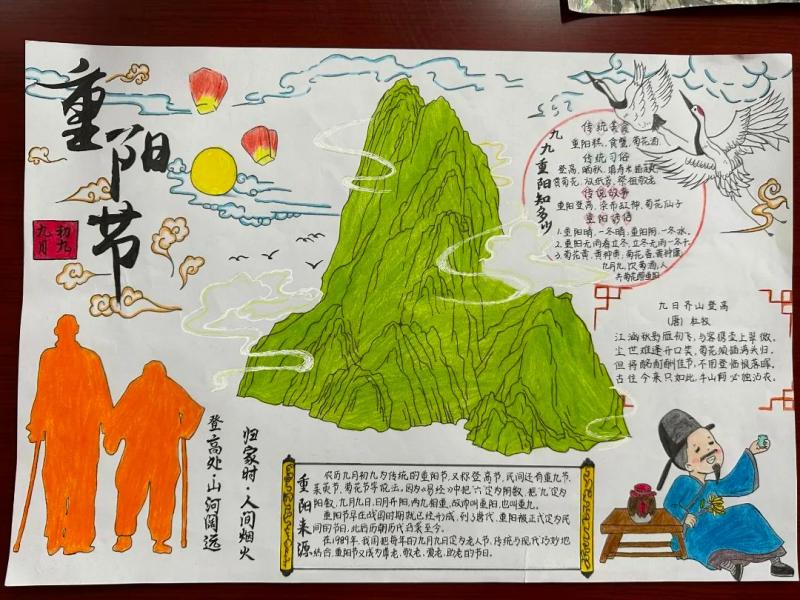 重阳节
九月
初九
九九重阳知多少
传统美食
重阳糕，食蟹，菊花酒
传统习俗
登高，晒秋，
赏菊花，放纸鸢，祭祖敬老
传说故事
重阳登高，茱萸
菊花仙子
重阳谚语
1.重阳晴，一冬晴，重阳阴，一冬冰。
2.重阳无雨看立冬，立冬无雨一冬干。
3.菊花黄，黄种强，菊花香，黄种康，
九月九，饮菊酒，人
共菊花醉重阳
九日齐山登高
（唐）杜牧
江涵秋影雁初飞，与客携壶上翠微。
尘世难逢开口笑，菊花须插满头归。
但将酩酊酬佳节，不用登临恨落晖。
古往今来只如此，牛山何必独沾衣。
登高处山河阔远
归家时·人间烟火
重阳来源
农历九月初九为传统的重阳节，又称登高节，民间还有重九节、
茱萸节、菊花节等说法。因为《易经》中把“六”定为阴数，把“九”定为
阳数，九月九日，日月并阳，两九相重，故而叫重阳，也叫重九。
重阳节早在战国时期就已经形成，到了唐代，重阳被正式定为民
间的节日，此后历朝历代沿袭至今。
在1989年，我国把每年的九月九日定为老人节，传统与现代巧妙地
结合，重阳节又成为尊老、敬老、爱老、助老的节日。